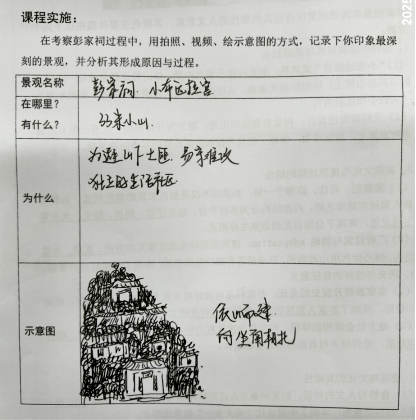 课程实施:
在考察彭家祠过程中，用拍照、视频、绘示意图的方式，记录下你印象最深
刻的景观，并分析其形成原因与过程。
景观名称
彭家祠、小布达拉宫
在哪里?
有什么?
33米小山.
为什么
为避山下土匪、易守难攻
独立的生活社区
示意图
依山而建
2025